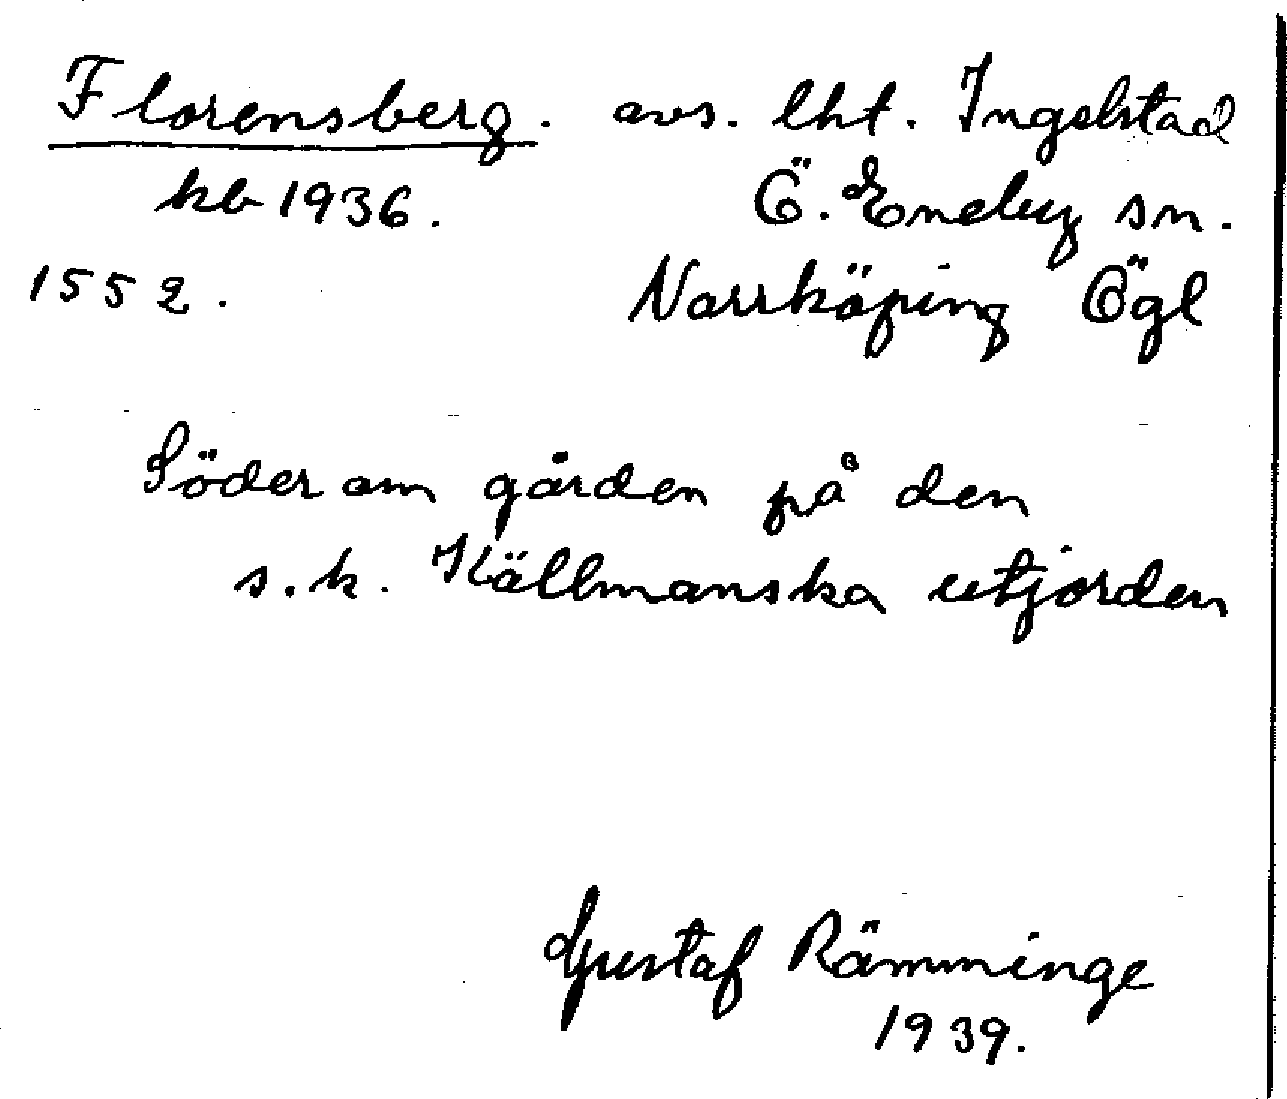 Florensberg. avs. lht. Ingelstad
kb 1936. Ö. Eneby sn.
1552. Norrköping Ögl
Söder om gården på den
s.k. Källmanska utjorden
Gustaf Rämminge
1939.